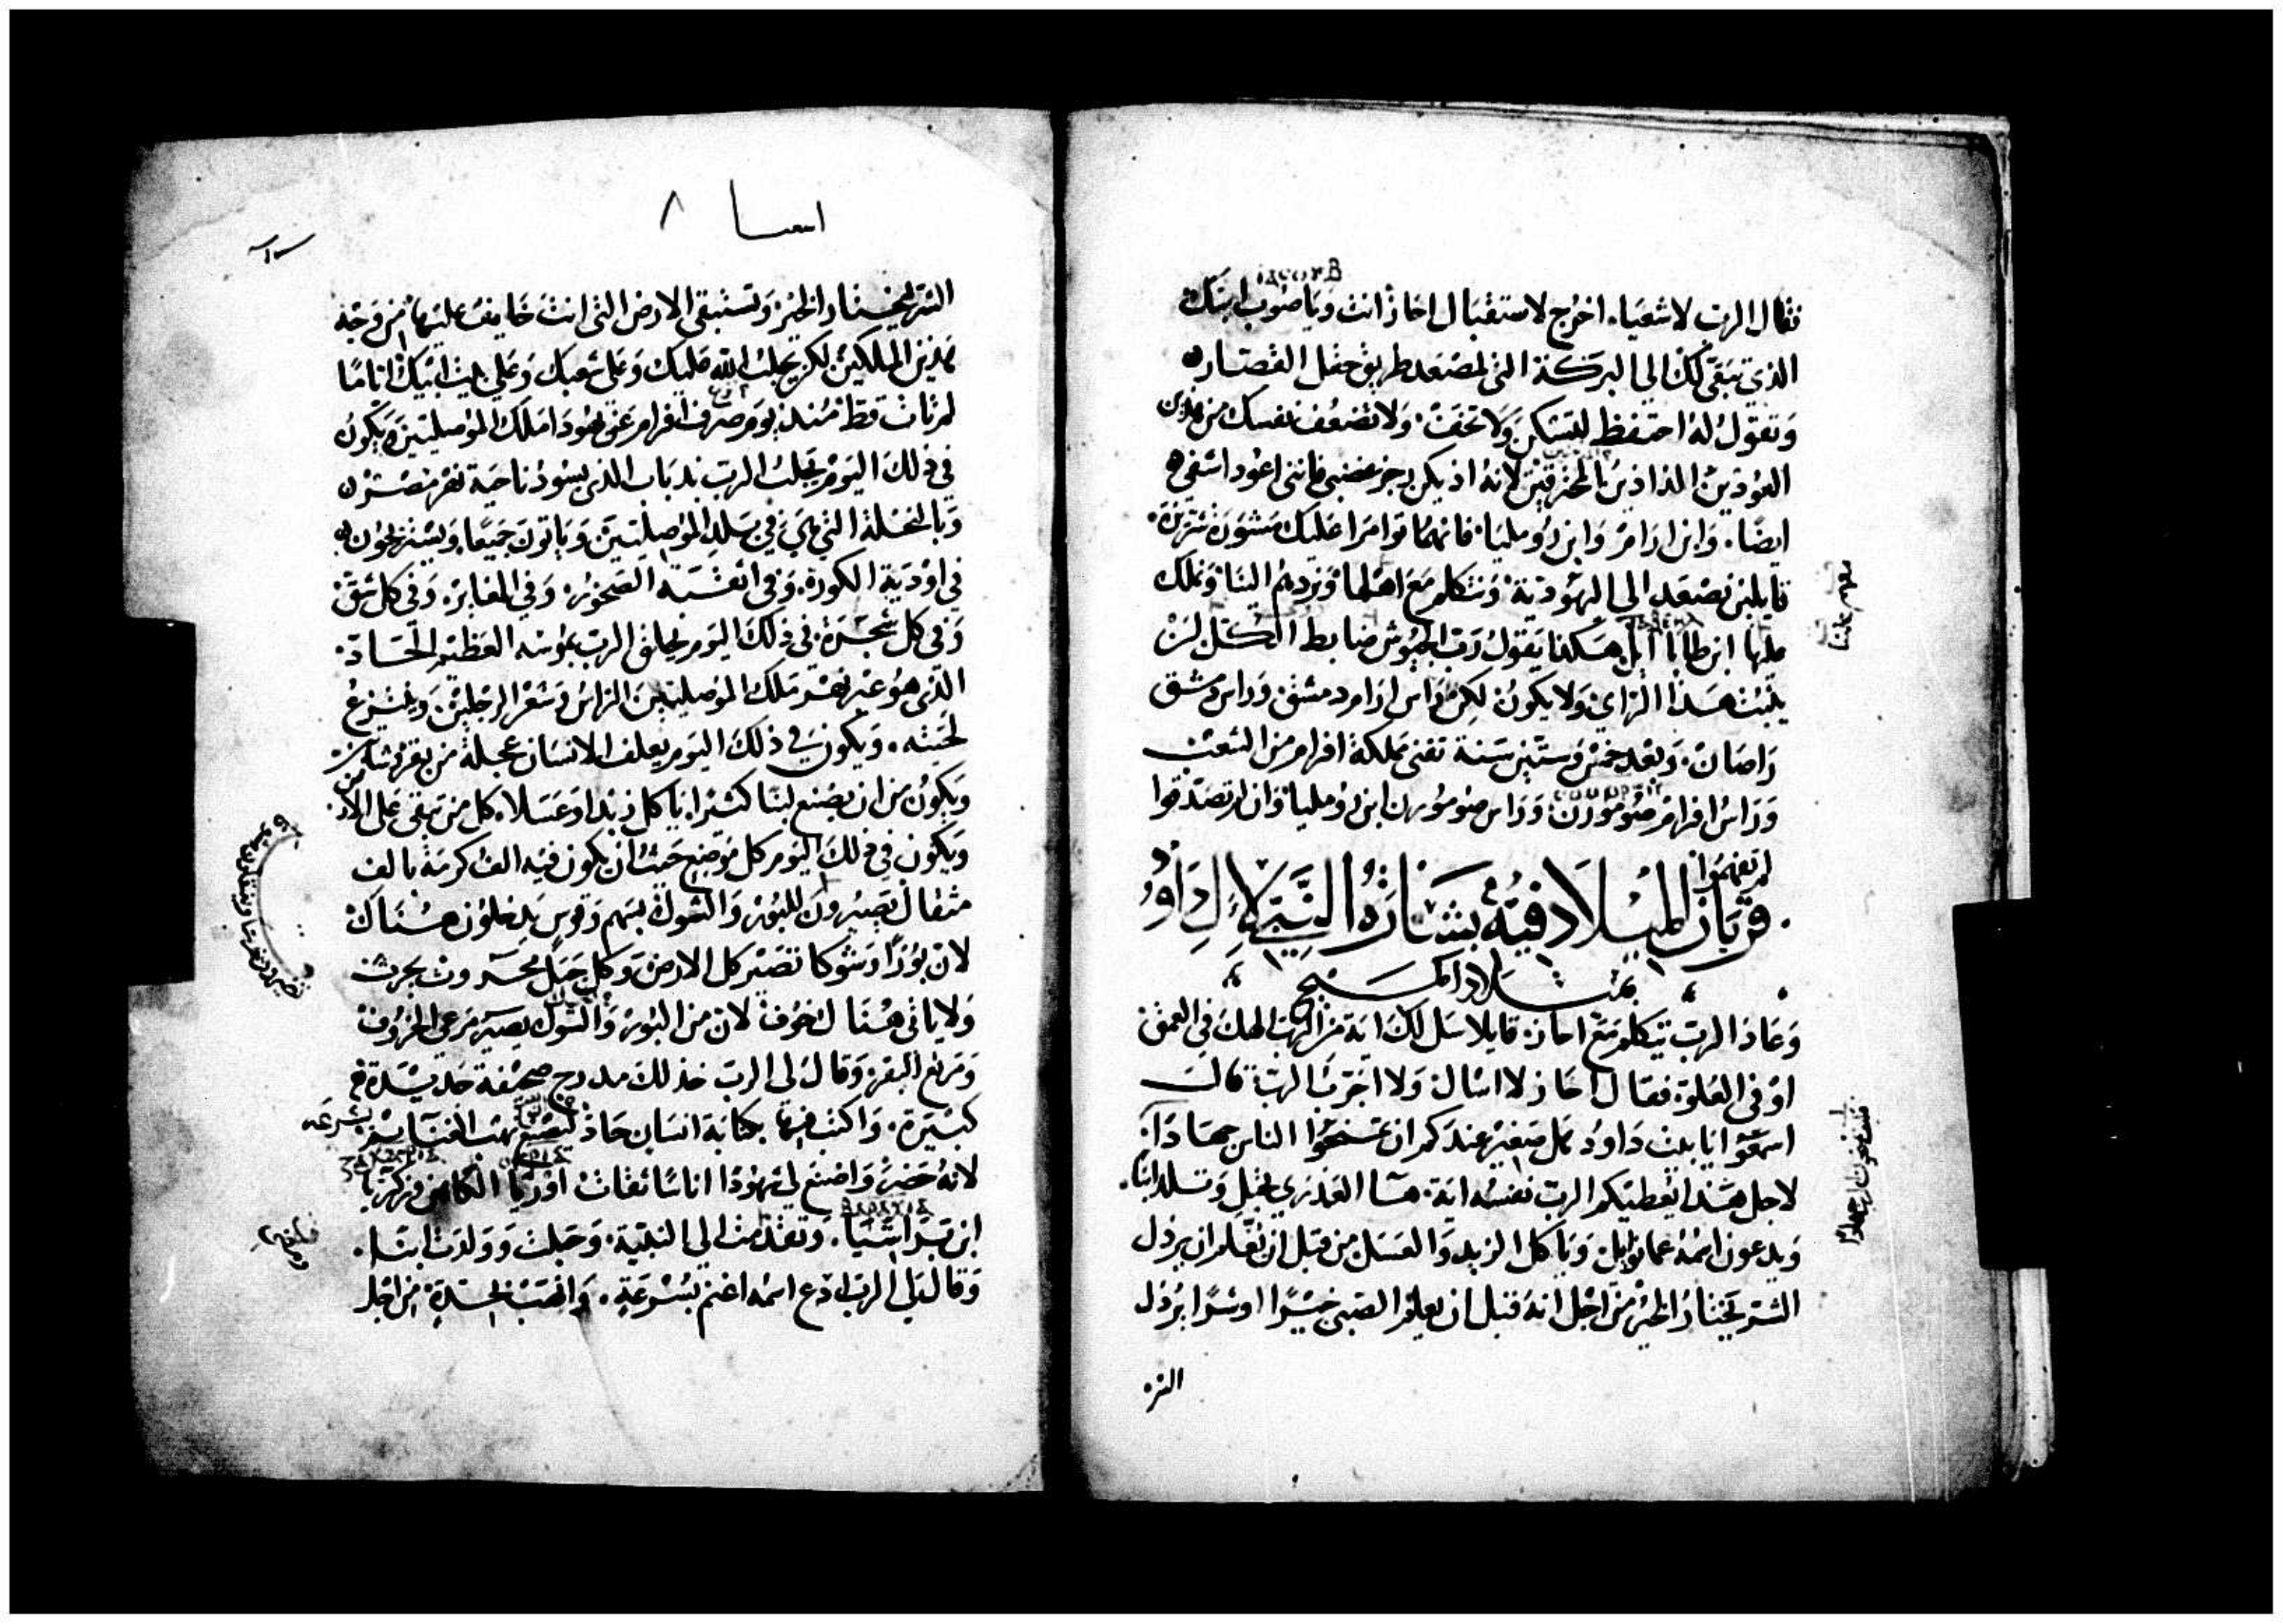 فقال الرب لاشعياء. اخرج لاستقبال احاز انت وياصوب ابنك
الذي تبقى لك الى البركة التى لمصعد طريق حقل القصار
وتقول له احتفظ لتسكن ولا تخف. ولا تضعف نفسك من هذين
العودين المداذين المحترقين لانه اذ يكن رجز غضبي فانني اعود اشفي
ايضا. وابن ارام وابن روميليا. فانهما توامرا عليك مشورة شريرة.
قايلين نصعد الى اليهودية ونتكلم مع اهلها ونردهم الينا ونملك
عليها ابن طابا ايل هكذا يقول رب الجيوش ضابط الكل لن
يثبت هذا الراي ولا يكون لكن راس ارام دمشق وراس دمشق
راصان. وبعد خمس وستين سنة تفنى مملكة افرام من الشعب
وراس افرام صومورن وراس صوموورن ابن روميليا وان لم تصدقوا
لم تفهموا
قربان الميلاد فيه بشارة النبي لال داود
بميلاد المسيح
وعاد الرب يتكلم مع احاز. قايلا سل لك اية من الرب الهك في العمق
او في العلو. فقال احاز لا اسال ولا اجرب الرب. قال
اسمعوا يا بيت داود هل صغير عندكم ان تمنحوا الناس جهادا.
لاجل هذا يعطيكم الرب نفسه اية. هسا العذرى تحبل وتلد ابنا.
ويدعون اسمه عمانوايل. وياكل الزبد والعسل من قبل ان يعلم ان يرذل
الشر يختار الخير من اجل انه قبل ان يعلم الصبي خيرا او شرا يرذل
الشر
اسعيا ٨
الشر ليختار الخير. وتستبقى الارض التى انت خايف عليها من وجه
هذين الملكين لكن يجلب الله عليك وعلى شعبك وعلى بيت ابيك اياما
لم تات قط منذ يوم صرف افرام عن يهودا ملك الموصليين ويكون
في ذلك اليوم يجلب الرب بذباب الذى يسود ناحية نهر مصر
وبالنحلة التي هي في بلد الموصليين وياتون جميعا ويستريحون
في اودية الكورة. وفى اثقبة الصخور. وفي المغاير. وفى كل شق
وفى كل شجرة. في ذلك اليوم يحلق الرب بموسه العظيم الحاد.
الذى هو عبر نهر ملك الموصليين الراس وشعر الرجلين. وينتزع
لحيته. ويكون في ذلك اليوم يعلف الانسان عجلة من بقر وشاتين
ويكون من ان يصنع لبنا كثيرا. ياكل زبدا وعسلا. كل من تبقى على الارض
ويكون في ذلك اليوم كل موضع حيث ان يكون فيه الف كرمة بالف
مثقال تصيرون للبور والشوك بسهم وقوس يدخلون هناك
لان بورا وشوكا تصير كل الارض. وكل جبل محروث يحرث
ولا ياتى هناك خوف لان من البور والشوك يصير مرعى الخروف
ومرتع البقر. وقال لى الرب خذ لك مدرج صحيفة جديدة
كبيرة. واكتب فيها بكتابة انسان حاد ليصنع نهب الغنايم بسرعه
لانه حضر. واصنع لي شهودا اناسا ثقات اوريا الكاهن وزكريا
ابن براشيا. وتقدمت الى النبية. وحبلت وولدت ابنا.
وقال لي الرب ادع اسمه اغنم بسرعة. وانهب بحدة. من اجل